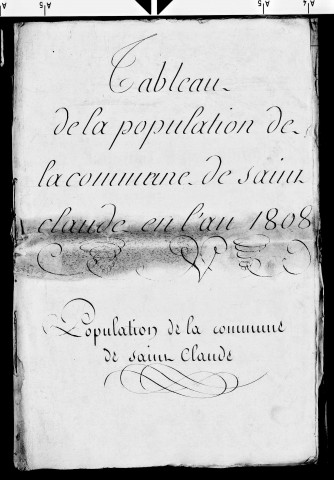 Tableau
de la population de
la commune de saint
claude en l'an 1808
Population de la commune
de saint Claude